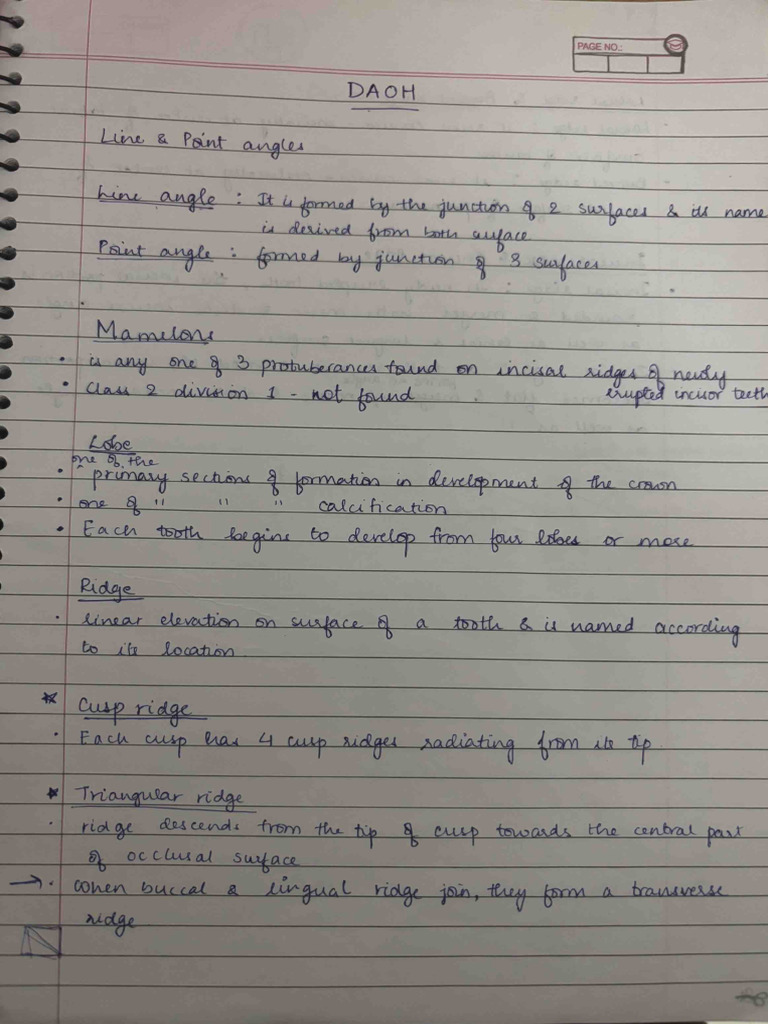 PAGE NO.:
DAOH
Line & Point angles
Line angle : It is formed by the junction of 2 surfaces & its name
is derived from both surface
Point angle : formed by junction of 3 surfaces
Mamelons
• is any one of 3 protuberances found on incisal ridges of newly
erupted incisor teeth
• Class 2 division 1 - not found
Lobe
one of the
• ^ primary sections of formation in development of the crown
• one of " " " calcification
• Each tooth begins to develop from four lobes or more
Ridge
• linear elevation on surface of a tooth & is named according
to its location
★ Cusp ridge
• Each cusp has 4 cusp ridges radiating from its tip.
★ Triangular ridge
• ridge descends from the tip of cusp towards the central part
of occlusal surface
→ • When buccal & lingual ridge join, they form a transverse
ridge